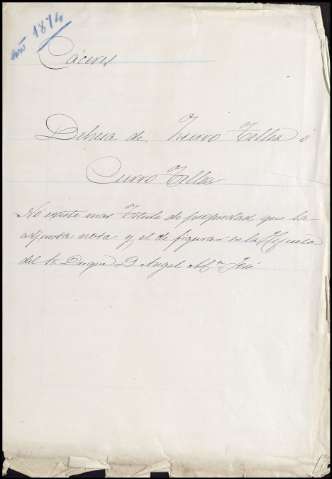 año 1874
Cáceres
Dehesa de Zurro Tellez ó
Curro Tellez
No existe mas Titulo de propiedad que la
adjunta nota y el de figurar en la
del Sr. Duque D. Angel Mª José